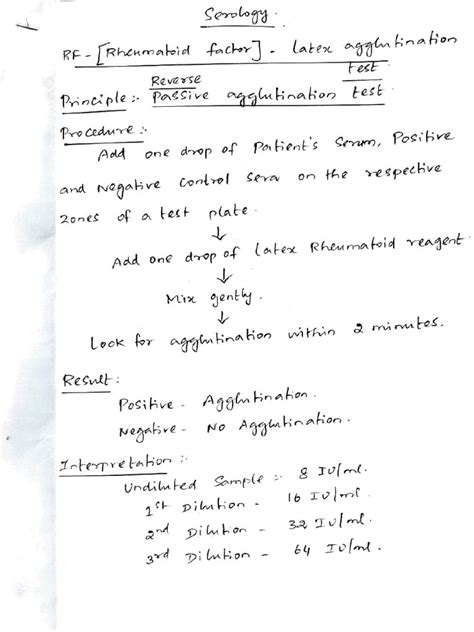 Serology.
RF - [Rheumatoid factor] - latex agglutination
test.
Reverse
Principle :- Passive agglutination test.
Procedure :-
Add one drop of Patient's Serum, Positive
and Negative Control Sera on the respective
zones of a test plate.
↓
Add one drop of Latex Rheumatoid reagent.
↓
Mix gently.
↓
Look for agglutination within 2 minutes.
Result :
Positive - Agglutination.
Negative - No Agglutination.
Interpretation :-
Undiluted Sample :- 8 IU/ml.
1st Dilution - 16 IU/ml.
2nd Dilution - 32 IU/ml.
3rd Dilution - 64 IU/ml.